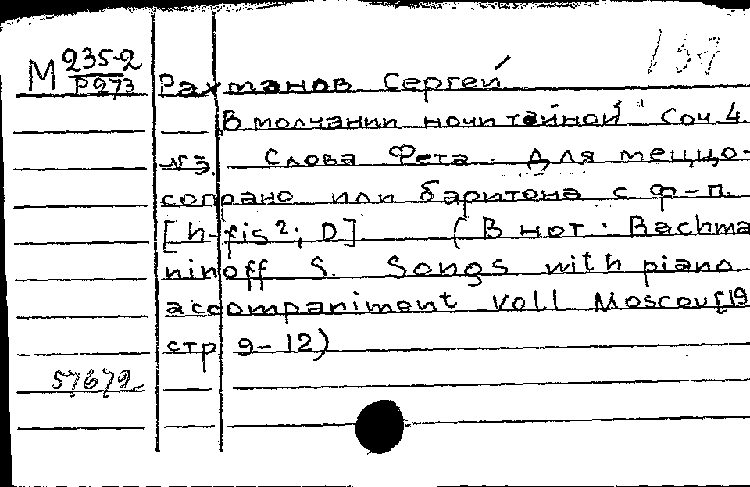 137
М 235-2
Р273
Рахманов Сергей
В молчании ночи тайной" Соч 4
№3. Слова Фета. Для меццо-
сопрано или баритона с ф-п.
[h-fis²; D] (В нот: Rachma
ninoff S. Songs with piano
accompaniment Voll Moscou [19
стр 9-12)
57679